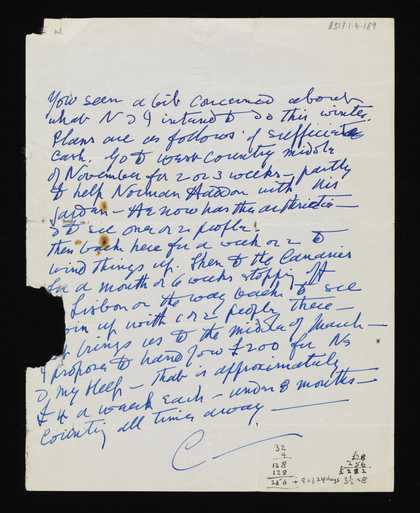 8517.1.4.189
You seem a bit concerned about
what N & I intend to do this winter.
Plans are as follows if sufficient
cash. Go to West Country middle
of November for 2 or 3 weeks — partly
to help Norman Haddon with his
garden — He now has the arthritis —
& to see one or 2 people.
Then back here for a week or 2 to
wind things up. Then to the Canaries
for a month or 6 weeks stopping off
Lisbon on the way back to see
join up with 1 or 2 people there —
brings us to the middle of March —
I propose to hand you £200 for Ns
& my keep — that is approximately
£4 a week each — under 8 months —
Counting all times away —
C
32
4
128
128
256
£28
256
£282
3½ = 8